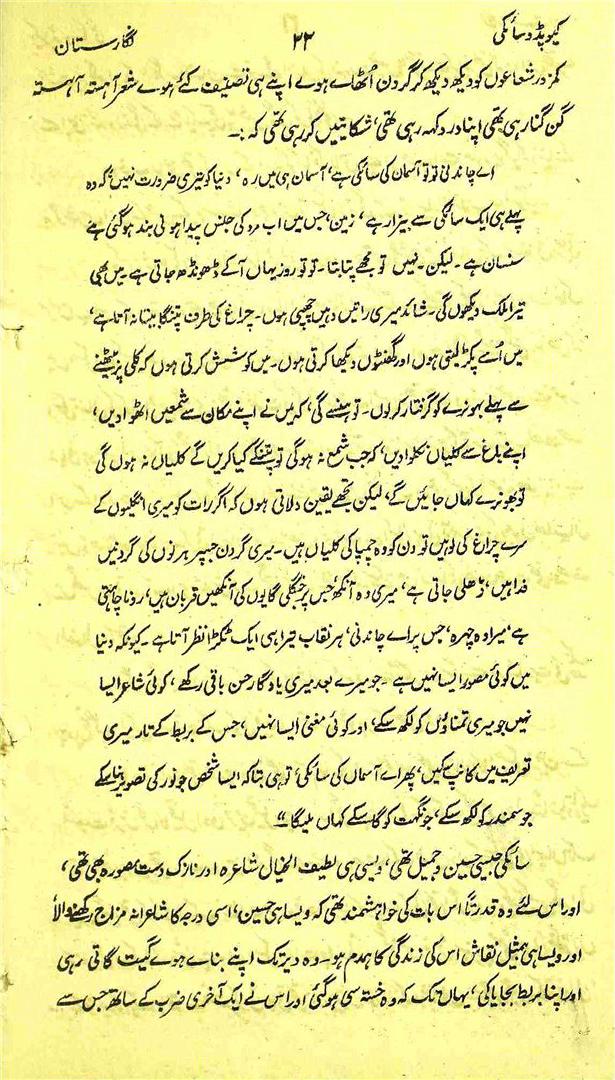 کیوپڈ و سائکی ۲۲ نگارستان
کمزور شعاعوں کو دیکھ دیکھ کر گردن اُٹھاے ہوے اپنے ہی تصنیف کئے ہوے شعر آہستہ آہستہ
گن گنا رہی تھی اپنا درد کہہ رہی تھی، شکایتیں کر رہی تھی کہ :۔
اے چاندنی تو تو آسمان کی سائکی ہے، آسمان ہی میں رہ، دنیا کو تیری ضرورت نہیں کہ وہ
پہلے ہی ایک سائکی سے بیزار ہے، زمین، جس میں اب مرد کی جنس پیدا ہونی بند ہوگئی ہے
سنسان ہے۔ لیکن۔ نہیں تو مجھے پتا بتا۔ تو تو روز یہاں آکے ڈھونڈھ جاتی ہے۔ میں بھی
تیرا ملک دیکھوں گی۔ شائد میری راتیں وہیں چھپی ہوں۔ چراغ کی طرف پتنگا بیتابانہ آتا ہے،
میں اُسے پکڑ لیتی ہوں اور گھنٹوں دیکھا کرتی ہوں۔ میں کوشش کرتی ہوں کہ کلی پر بیٹھنے
سے پہلے بھونرے کو گرفتار کرلوں۔ تو ہنسے گی، کہ میں نے اپنے مکان سے شمعیں اٹھوا دیں،
اپنے باغ سے کلیاں نکلوا دیں، کہ جب شمع نہ ہوگی تو پتنگے کیا کریں گے کلیاں نہ ہوں گی
تو بھونرے کہاں جائیں گے، لیکن تجھے یقین دلاتی ہوں کہ اگر رات کو میری انگلیوں کے
سرے چراغ کی لو ہیں تو دن کو وہ چمپا کی کلیاں ہیں۔ میری گردن جسپر ہرنوں کی گردنیں
فدا ہیں، ڈھلی جاتی ہے، میری وہ آنکھ، جس پر جنگلی گایوں کی آنکھیں قربان ہیں، رونا چاہتی
ہے، میرا وہ چہرہ، جس پر اے چاندنی، ہر نقاب تیرا ہی ایک ٹکڑا نظر آتا ہے۔ کیونکہ دنیا
میں کوئی مصور ایسا نہیں ہے۔ جو میرے بعد میری یادگار حسن باقی رکھے، کوئی شاعر ایسا
نہیں جو میری تمناؤں کو لکھ سکے، اور کوئی مغنی ایسا نہیں، جس کے بربط کے تار میری
تعریف میں کانپ سکیں، پھر اے آسماں کی سائکی، تو ہی بتا کہ ایسا شخص جو نور کی تصویر بنا سکے
جو سمندر کو لکھ سکے، جو نکہت کو گا سکے کہاں ملیگا“
سائکی جیسی حسین و جمیل تھی، ویسی ہی لطیف الخیال شاعرہ اور نازک دست مصورہ بھی تھی،
اور اس لئے وہ قدرتاً اس بات کی خواہشمند تھی کہ ویسا ہی حسین، اسی درجہ کا شاعرانہ مزاج رکھنے والا
اور ویسا ہی بمثیل نقاش اس کی زندگی کا ہمدم ہو۔ وہ دیر تک اپنے بناے ہوے گیت گاتی رہی
اور اپنا بربط بجایا کی، یہاں تک کہ وہ خستہ سی ہوگئی اور اس نے ایک آخری ضرب کے ساتھ جس سے